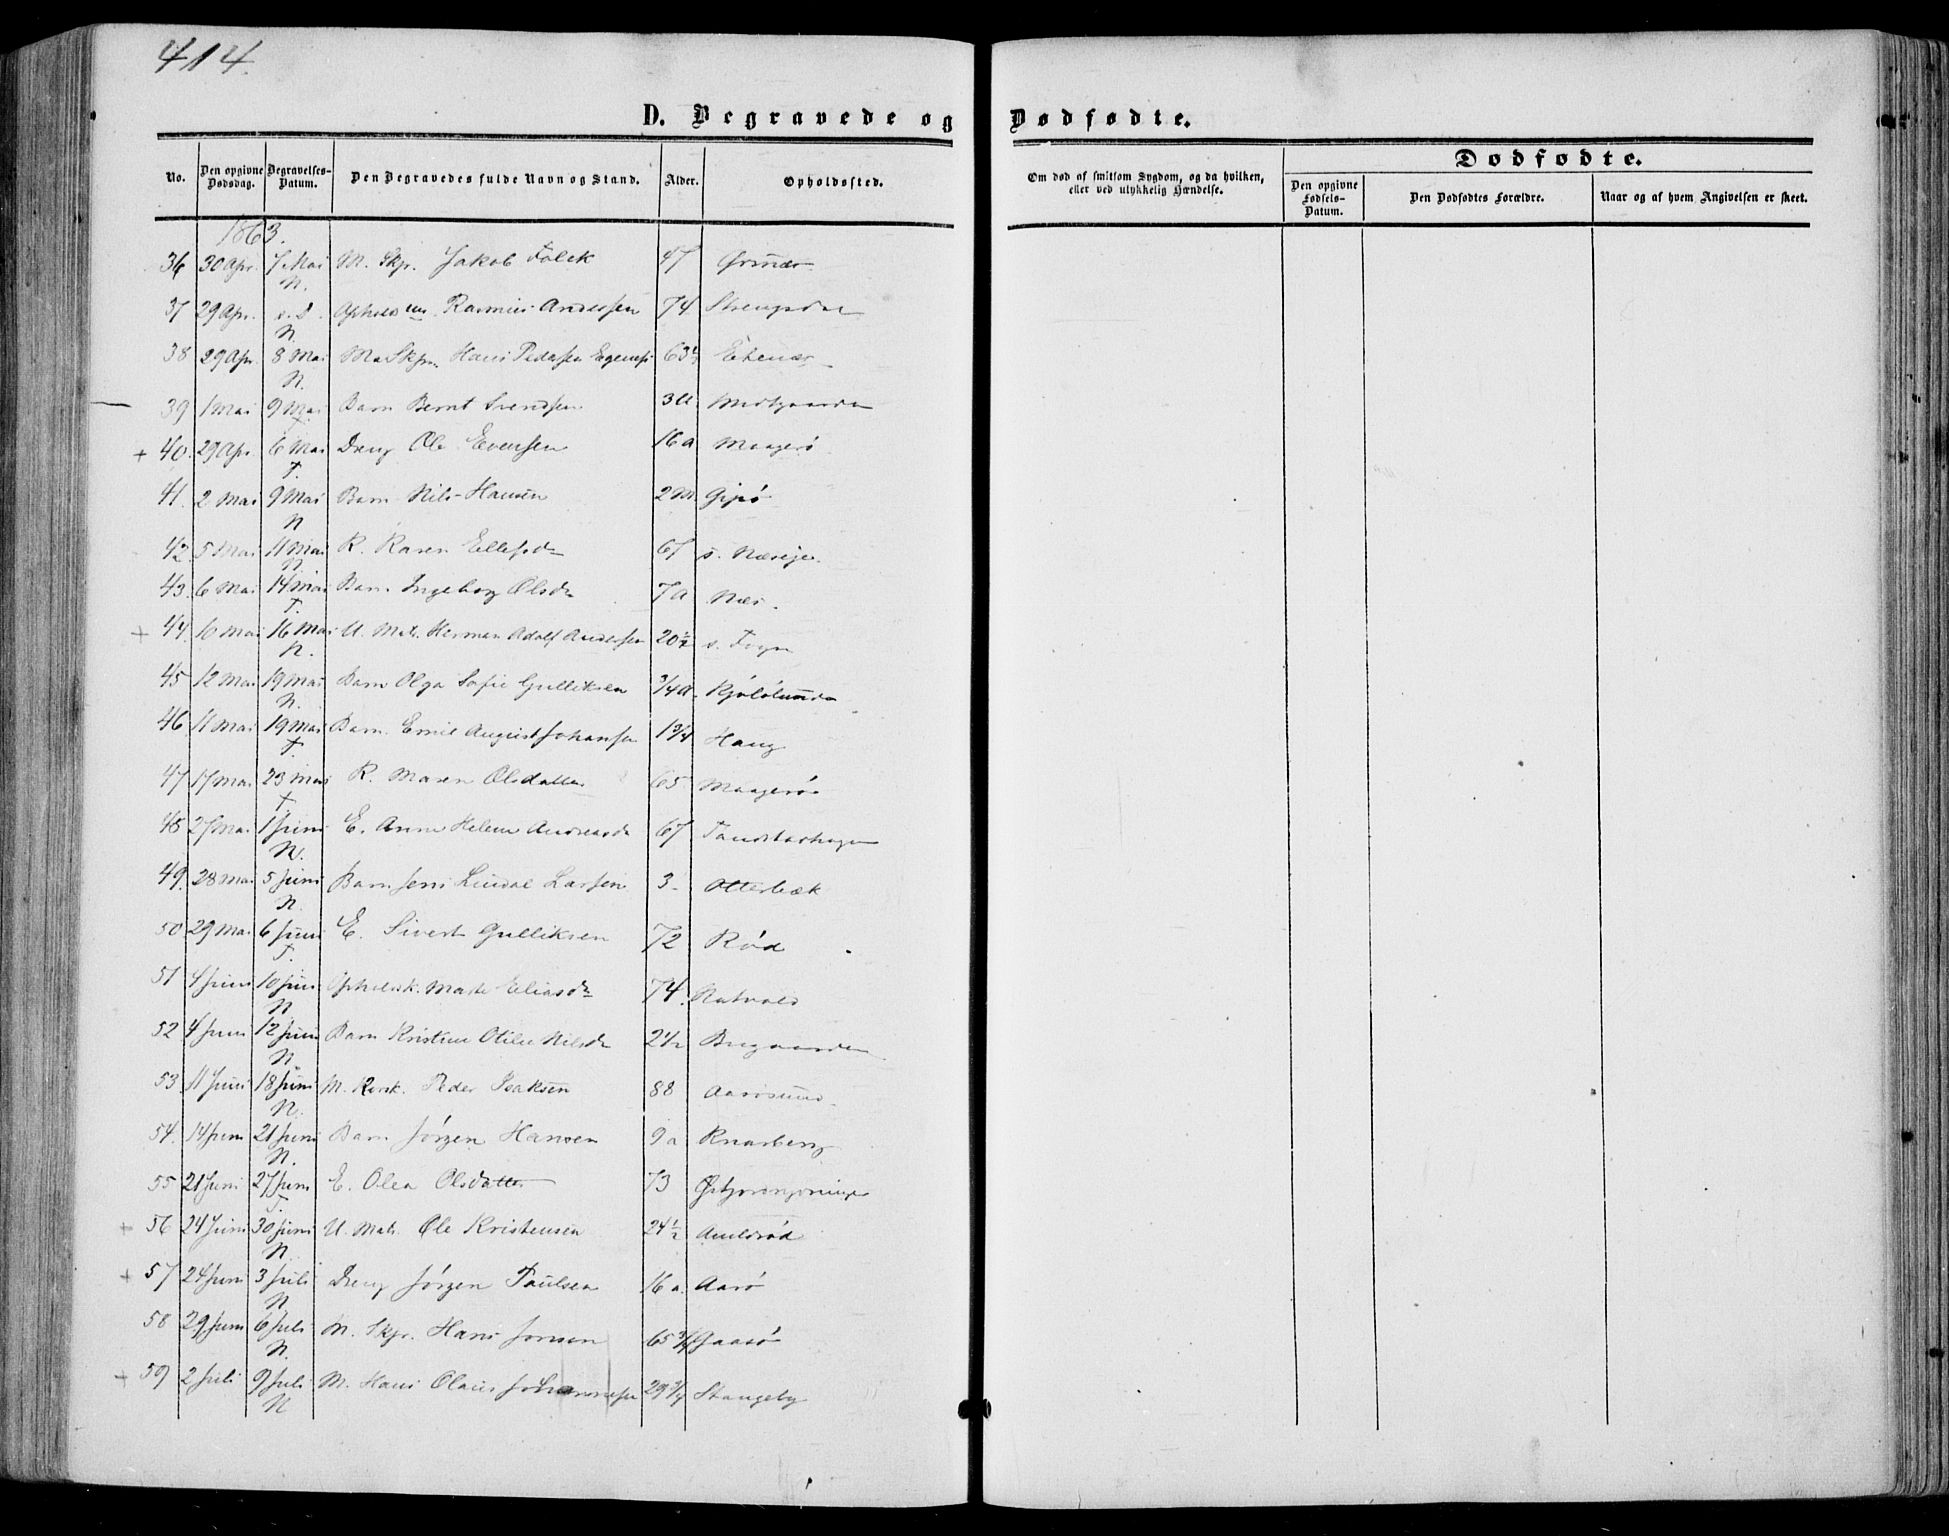 414.
D. Begravede og Dødfødte.
No. Den opgivne Dødsdag. Begravelses-Datum. Den Begravedes fulde Navn og Stand. Alder. Opholdssted. Om død af smitsom Sygdom, og da hvilken, eller ved ulykkelig Hændelse. Dødfødte.
Den opgivne Fødsels-Datum. Den Dødfødtes Forældre. Naar og af hvem Angivelsen er skeet.
1863.
36 30 Apr. 7 Mai N. M. Skpr. Jakob Falck 47
37 29 Apr. s. D. N Rasmus Anderssen 74 Strengsdal
38 29 Apr. 8 Mai N. Hans Pederssen 63½ Ekenæs
39 1 Mai 9 Mai T. Barn Bernt Svendsen 3 a. Midtgaarden
+ 40. 29 Apr. 6 Mai T. Dreng Ole Evensen 16 a Maagerø
41. 2 Mai 9 Mai N Barn Nils Hansen 2 M. Gipø
42. 5 Mai 11 Mai N. K. Karen Ellefsd. 67 s. Næseje.
43. 6 Mai 14 Mai T. Barn Ingeborg Olsd. 7 a Næs.
+ 44. 10 Mai 16 Mai N. U. Matr. Herman Adolf Anderssen 20½
45 12 Mai 19 Mai N. Barn Olga Sofie Gulliksen ¾ a. Kjølølunden
46 11 Mai 19 Mai T Barn Emil August Johansen 1¾ Haug
47 17 Mai 23 Mai T K. Maren Olsdatter 65 Maagerø
48 27 Mai 1 Juni N. E. Anne Helene Andreasd. 67
49. 28 Mai 5 Juni N. Barn Jens Lindal Larsen 3 Otterbæk
50 29 Mai 6 Juni T. E. Sivert Gulliksen 72 Rød
51 4 Juni 10 Juni N Opholdsk. Marte Eliasd. 74. Natvold
52 4 Juni 12 Juni N Barn Kristine Otilie Nilsd. 2½ Brugaarden
53 11 Juni 18 Juni N. M. Peder Isaksen 88 Aarøsund.
54. 14 Juni 21 Juni N. Barn Jørgen Hansen 9 a Knarberg
55 21 Juni 27 Juni T. E. Olea Olsdatter 73
+ 56 24 Juni 30 Juni N U. Matr. Ole Kristensen 24½ Amelsrød
+ 57 24 Juni 3 Juli N Dreng Jørgen Paulsen 16 a. Aarø
58 29 Juni 6 Juli N. M. Skpr. Hans Jonsen 65¾ Gaasø
+ 59 2 Juli 9 Juli N M. Hans Olaus Johannessen 29¾ Stangeby